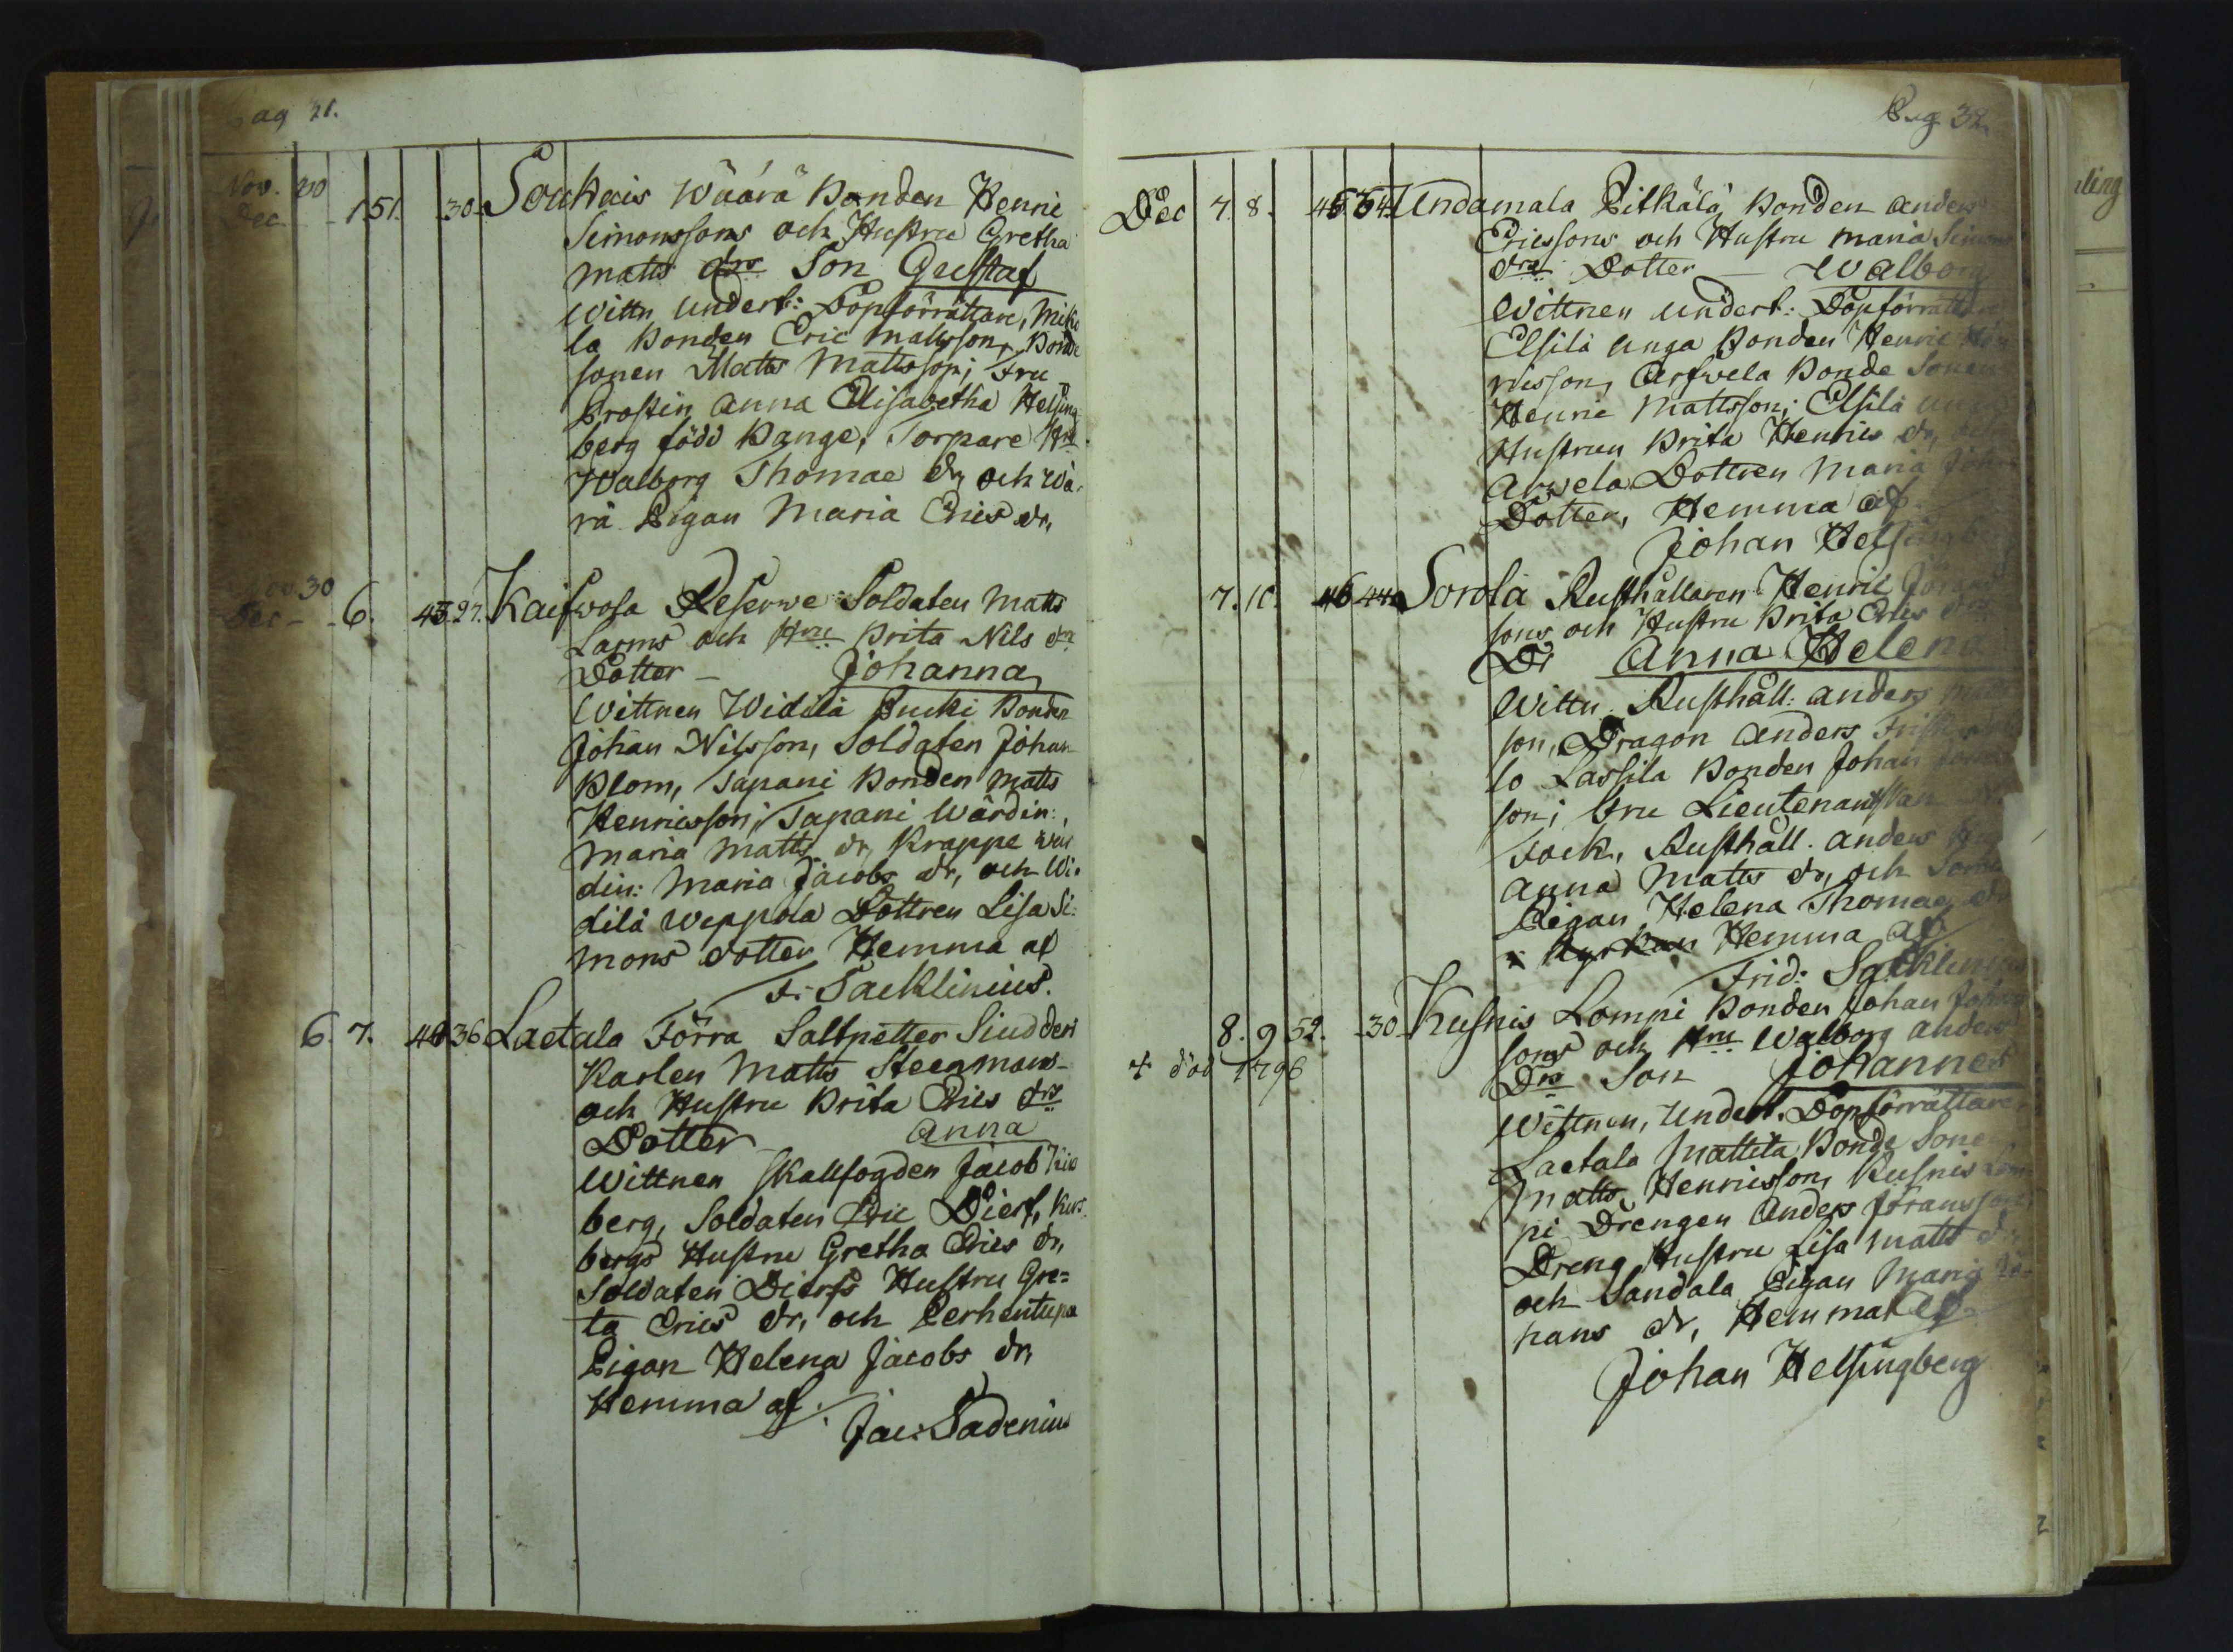 ag 31.
Nov. 30
Dec. 1. 51. 30. Soukais Wäärä Bonden Henric
Simonssons och Hustru Gretha
Matts drs Son Gustaf
Wittn undert: Döpförrättare, Mike
la Bonden Eric Mattsson, Bonde
sonen Matts Mattsson; Fru
Prostin Anna Elisabetha Helsing
berg född Bange, Torpare Hru
Walborg Thomae dr, och Wä
rä Pigan Maria Erics dr,
Nov 30
Dec - 6. 43. 27. Kaifwosa Reserwe Soldaten Matts
Larms och Hru Brita Nils drs
Dotter - Johanna
Wittnen Widilä Jucki Bonden
Johan Nilsson, Soldaten Johan
Blom, Tapani Bonden Matts
Henricsson; Tapani Wärdin:,
Maria Matts dr, Krappe wär
din: Maria Jacobs dr, och Wi-
dilä Weppola Dottren Lisa Si:
mons dotter Hemma af
F. Sacklinius.
6. 7. 48 36 Laetala Förra Saltpetter Siudderi
Karlen Matts Steenmans
och Hustru Brita Erics drs
Dotter Anna
Wittnen Skallfogden Jacob Kis
berg, Soldaten Eric Diert, Kis
bergs Hustru Gretha Erics dr,
Soldaten Dierts Hustru Gre=
ta Erics dr, och Perhentupa
Pigan Helena Jacobs dr,
Hemma af.
Jac: Sadenius
Pag 32
Dec 7. 8. 45. 34 Undamala Pitkälä Bonden Anders
Ericssons och Hustru Maria Simons
drs Dotter - Walborg
Wittnen undert: Döpförrätt
Elsilä unga Bonden Henric Hen
ricsson, Arfwela Bonde Sonen
Henric Mattsson; Elsilä unga
Hustrun Brita Henrics dr, och
Arwela Dottren Maria Joh
Dotter, Hemma af
Johan Helsingb
7. 10. 46 44 Sorola Rusthållaren Henric Jöran
sons och Hustru Brita Erics drs
Dr Anna Helena
Wittn. Rusthåll: Anders Matts
son, Dragon Anders Frisk,
lo Lassila Bonden Johan
son; Fru Lieutenantskan
Fock, Rusthåll. Anders
Anna Matts dr, och Sorola
Pigan Helena Thomae dr
i Kyrkan Hemma af
Frid: Sacklinius
8. 9 52. 30 Kusnis Lompi Bonden Johan Johans
sons och Hru Walborg Anders
Drs Son Johannes
† död 1796
Wittnen, Undert. Döpförrättare,
Laetala Mattila Bonde Sone
Matts Henricsson, Kusnis Lom
pi Drengen Anders Fransson,
Dreng Hustru Lisa Matts dr,
och Sandala Pigan Maria Jo
hans dr, Hemma af
Johan Helsingberg